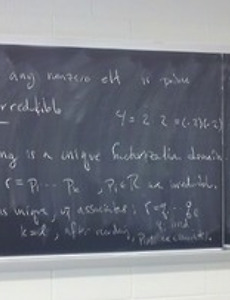 any nonzero elt is prime
irreducible
4 = 2 2 = (-2)(-2)
ng is a unique factorization domain
r = p₁ ... pₖ , pᵢ ∈ R are irreducible.
is unique, up associates : r = q₁ ...
k = l , after